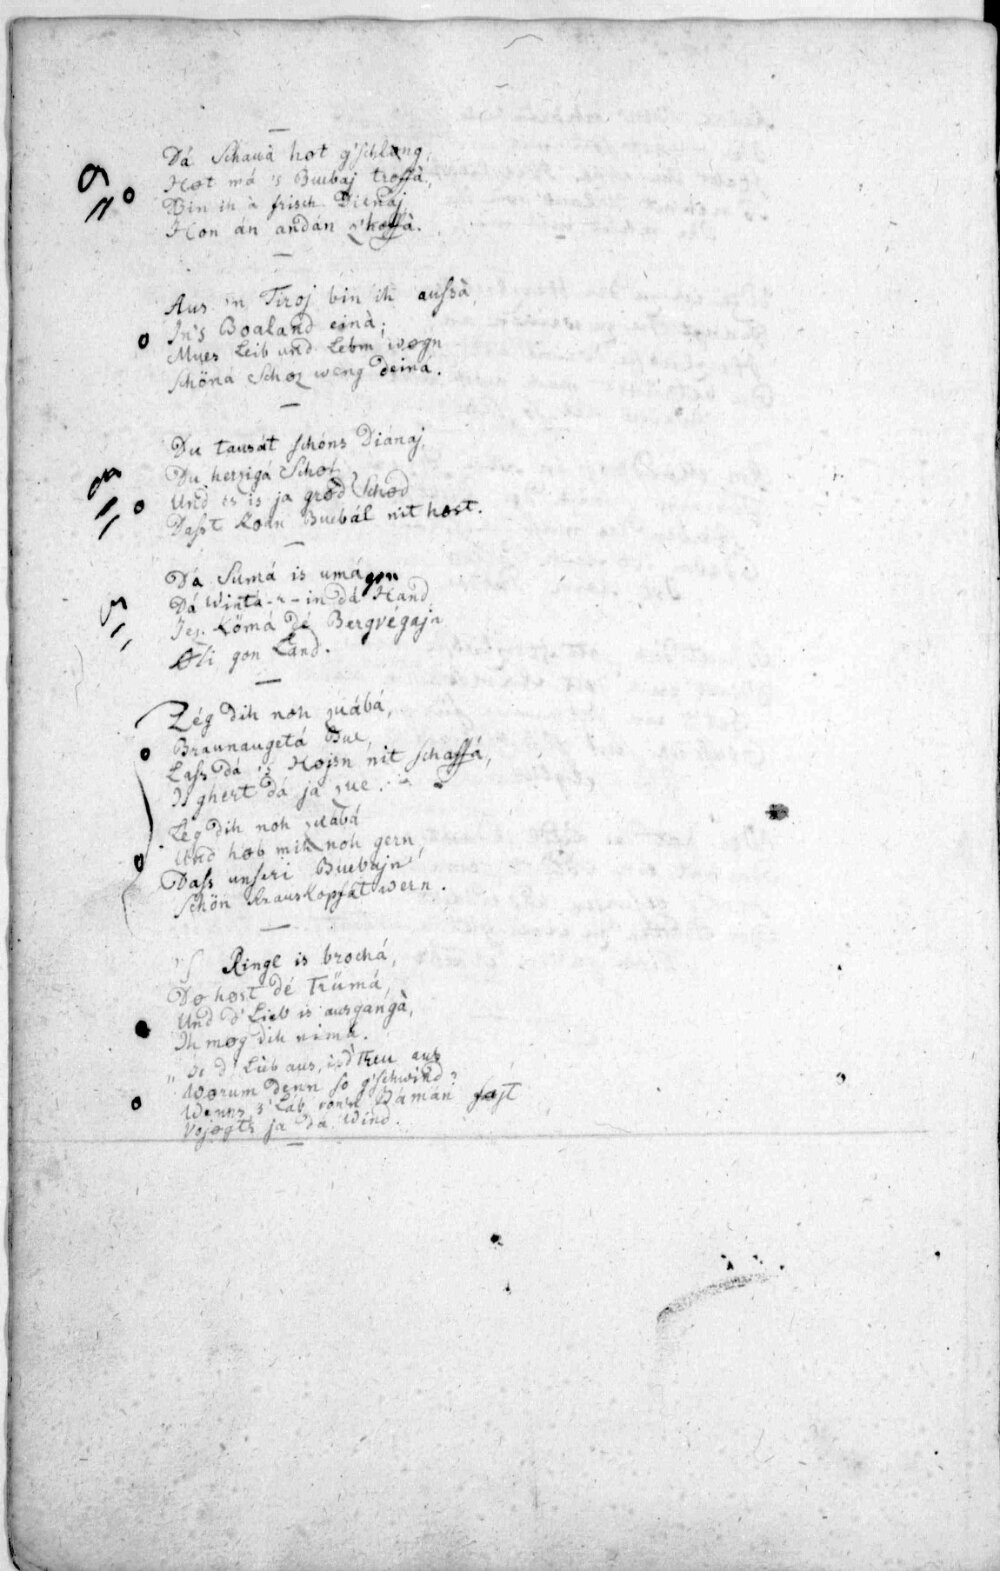 Dá Schauà hot g'schlang,
Hot má 's Buebaj troffà,
Bin ih à frisch Dienaj,
Hon án andán g'hoffà.

Aus 'n Tiroj bin ih aussà,
In's Boaland einà;
Mues Leib und Lebm wogn
Schöná Schoz weng deina.

Du tausát schöns Diánaj,
Du herzigá Schoz
Und es is ja grod Schod
Dasst koan Buebál nit host.

Dá Sumá is umágon
Dá Wintá-r-in dá Hand,
Iez kömá dé Bergvégajn
Oli gon Land.

Lég dih noh zuábá,
Braunaugetá Bue,
Lass dá 's Hojsn nit schaffá,
Is ghert dá ja zue.
Lég dih noh zuábá
Und hob mih noh gern,
Dass unseri Buebajn
Schön krauskopfat wern.

's Ringl is brochá,
Do host dé Trümá,
Und d' Lieb is ausgangà,
Ih mog dih nimá.
„ Is d' Lieb aus, is d' Treu aus
Worum denn so g'schwind?
Wenns 's Láb von Bámán fojt
Vojogts ja dá Wind.